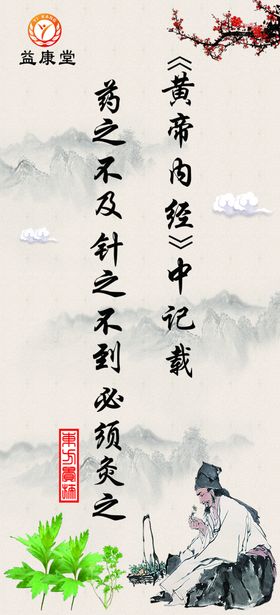 益康堂
《黄帝内经》中记载
药之不及针之不到必须灸之